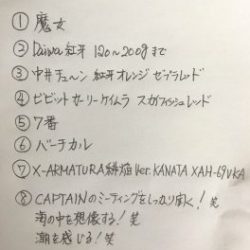 ① 魔女
② Daiwa 紅牙 120〜200gまで
③ 中井チューン 紅牙オレンジ ゼブラレッド
④ ビビットセーリーケイムラ スカッフィッシュレッド
⑤ 7番
⑥ バーチカル
⑦ X-ARMATURA 緋焔 Ver. KANATA XAH-69VKA
⑧ CAPTAINのミーティングをしっかり聞く! 笑
海の中を想像する! 笑
潮を感じる! 笑